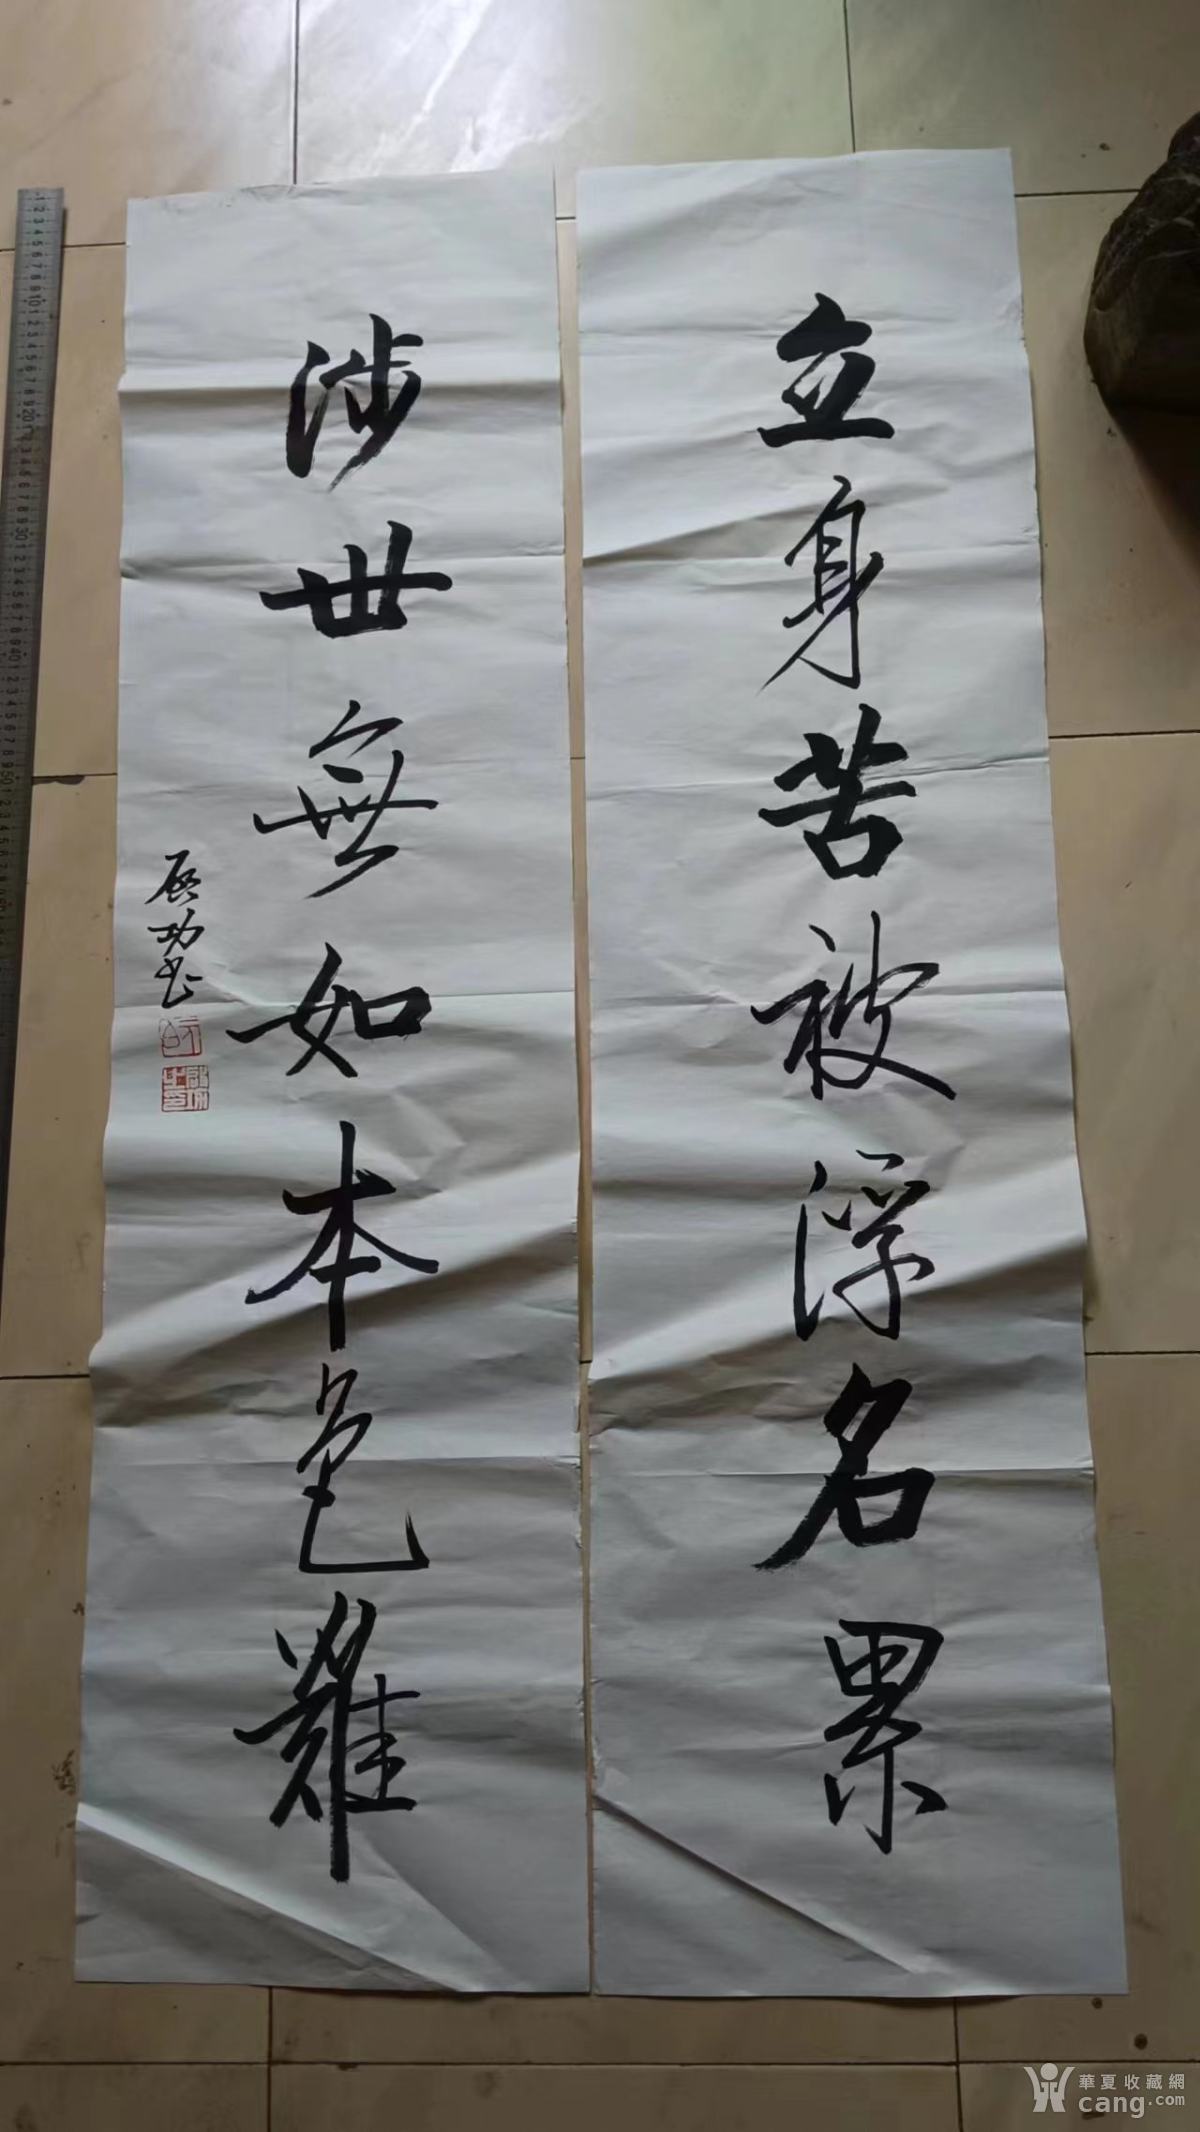 立身苦被浮名累
涉世無如本色難
启功书
華夏收藏網
cang.com